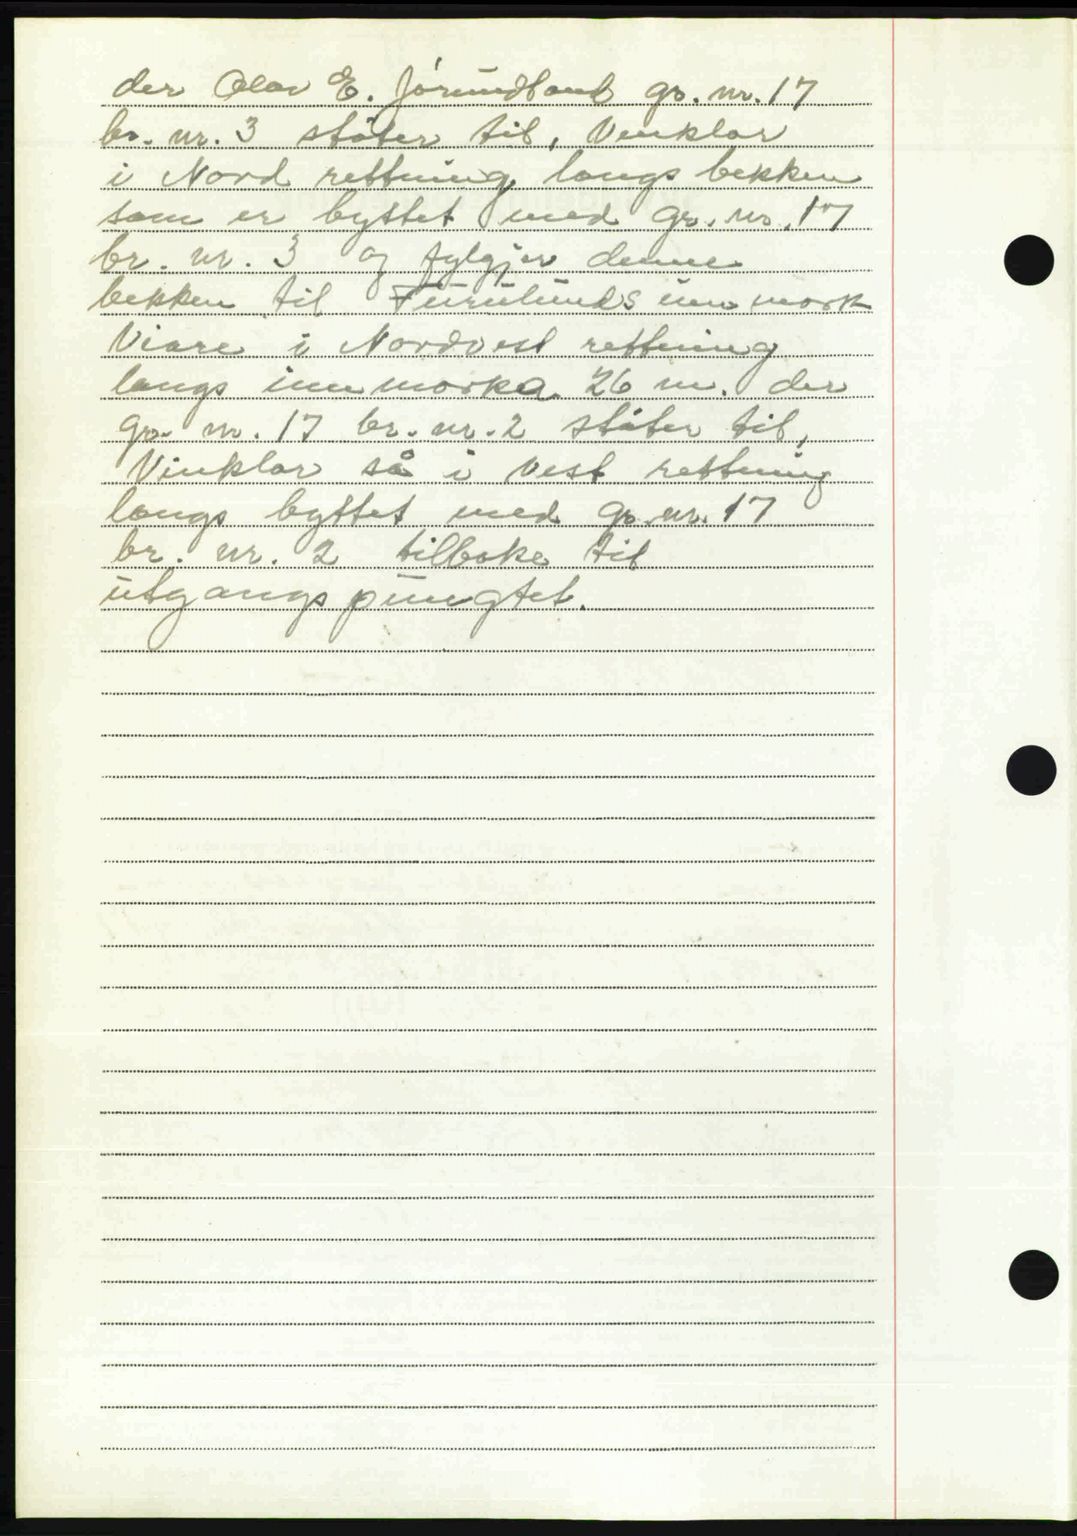 der Olav E. Jórundland gr. nr. 17
br. nr. 3 støter til, Vinklar
i Nord rettning langs bekken
som er byttet med gr. nr. 17
br. nr. 3 og fylgjer denne
bekken til Furulunds inn mork
Viare i Nordvest rettning
langs innmorka 26 m. der
gr. nr. 17 br. nr. 2 støter til,
Vinklar så i Vest rettning
langs byttet med gr. nr. 17
br. nr. 2 tilbake til
utgangspungtet.